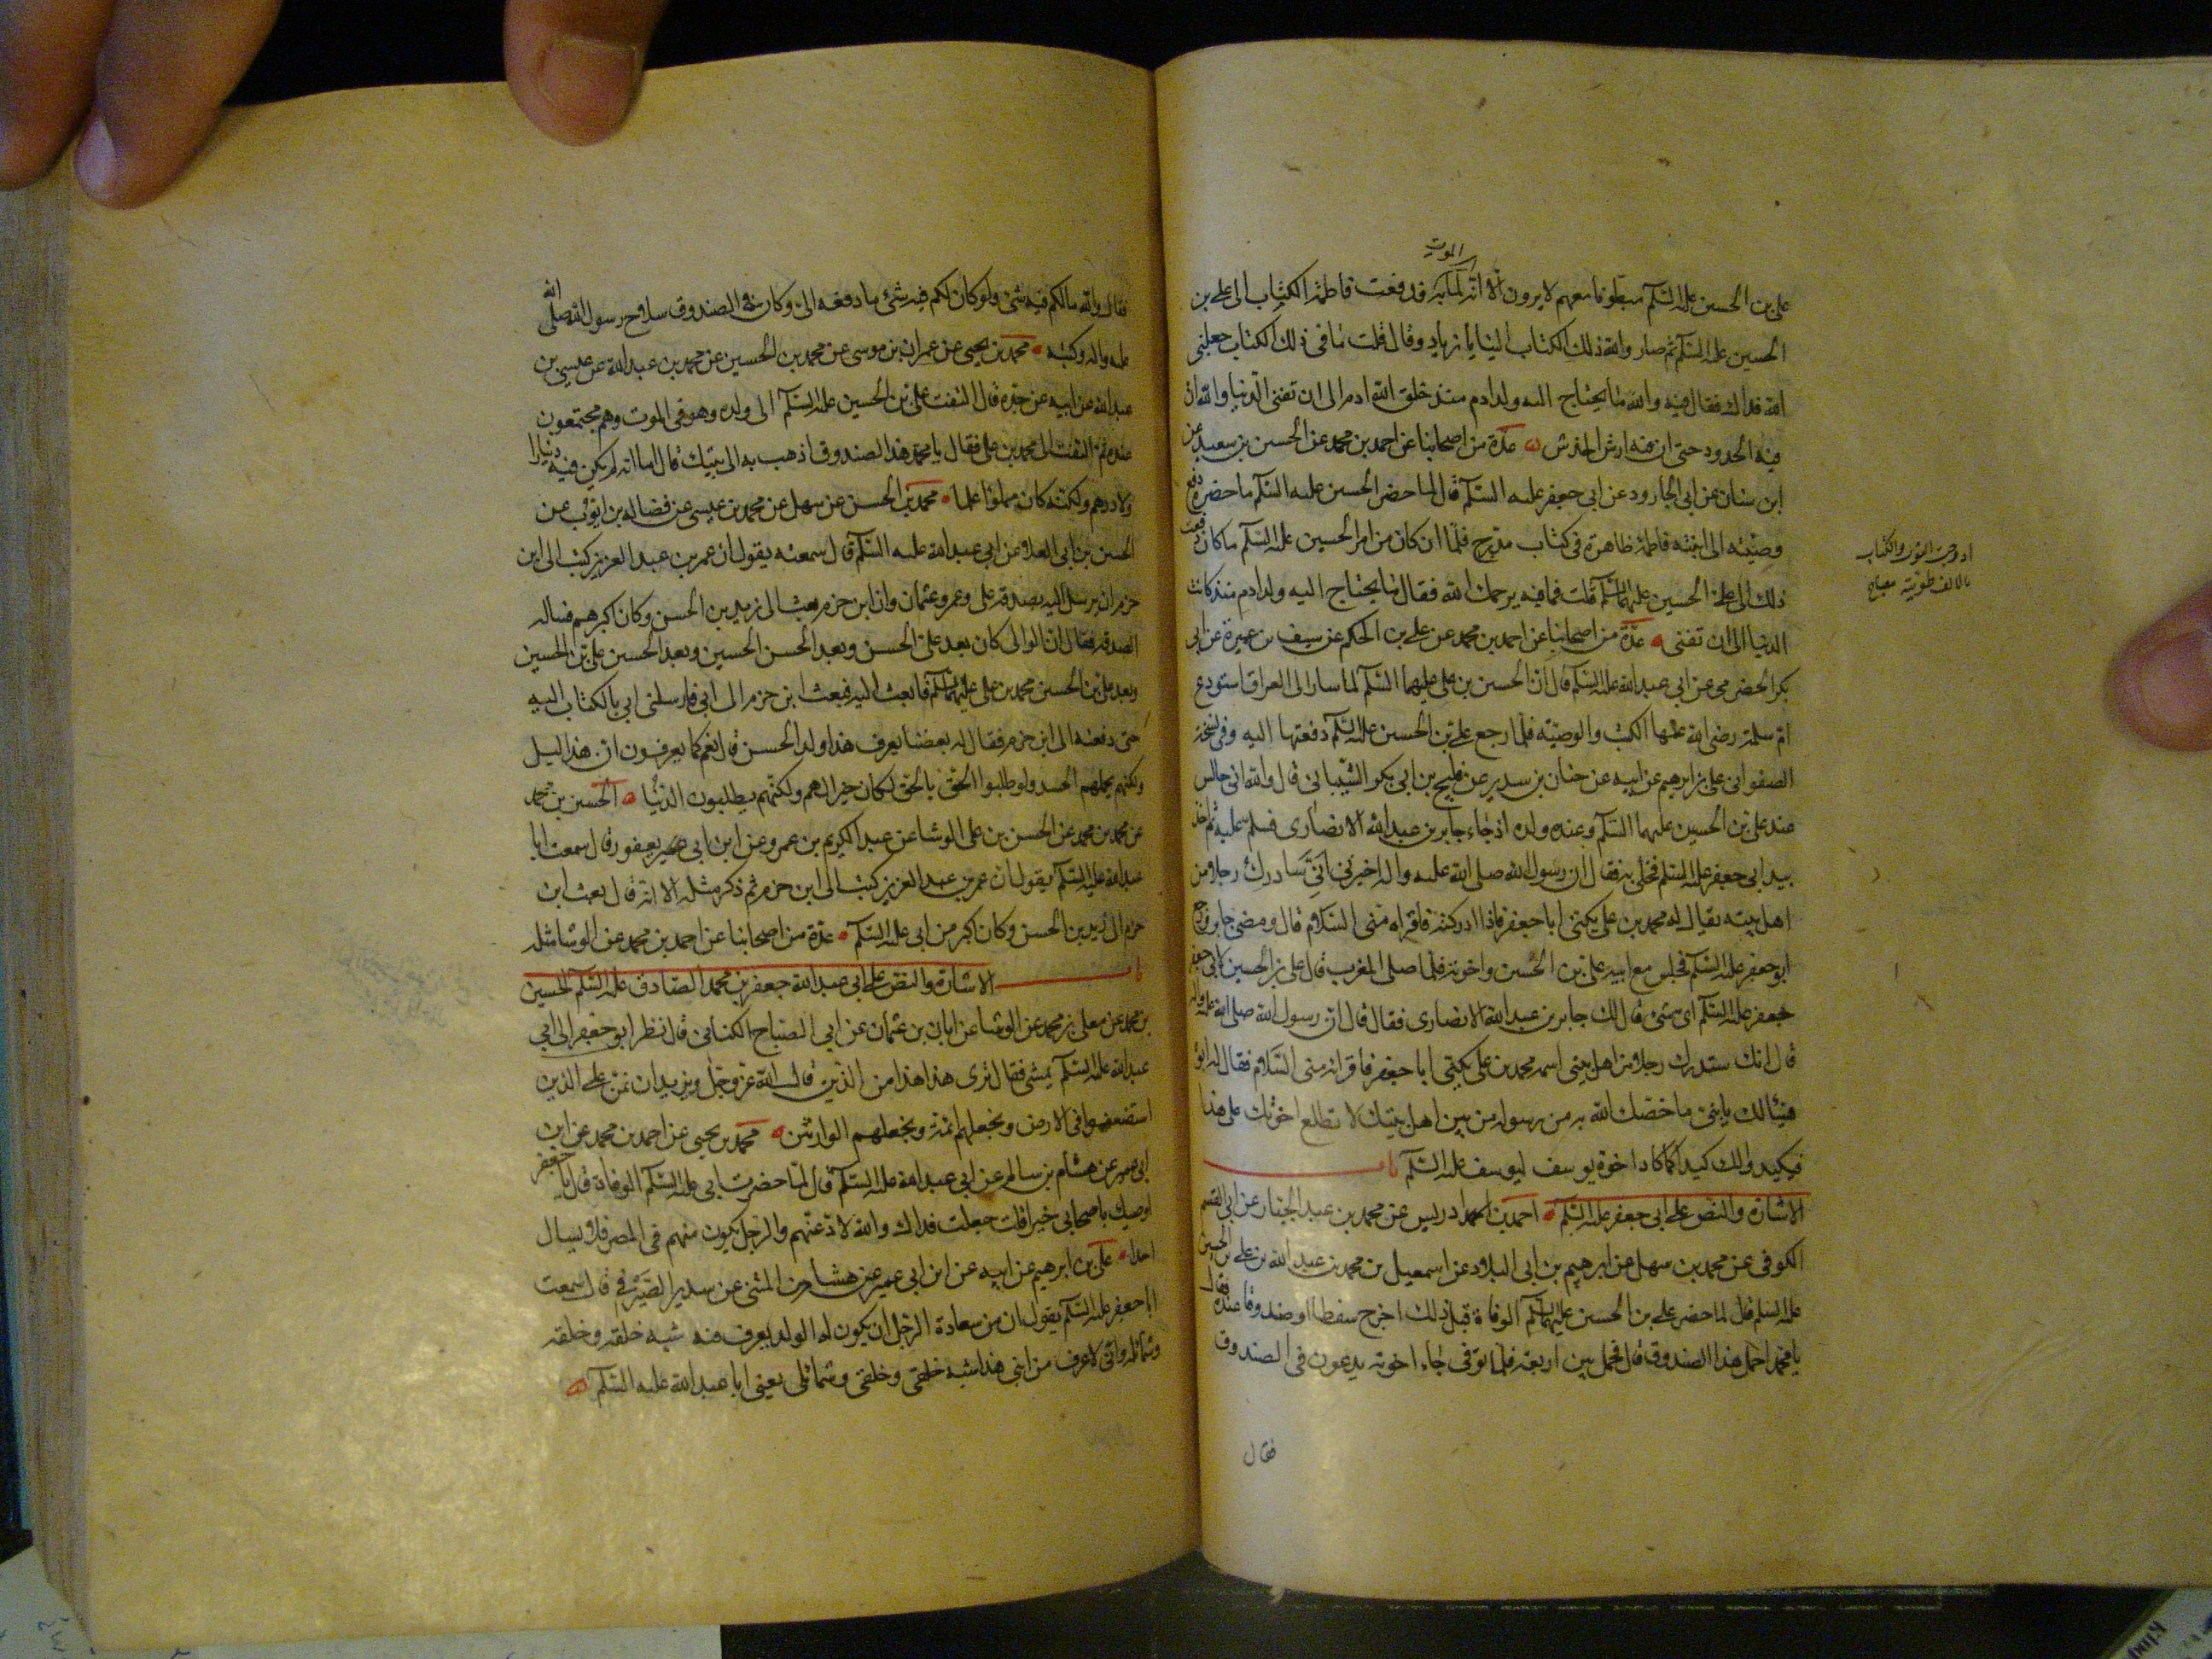 الموت
علی بن الحسین علیه السلم مبطونا معهم لا یرون الا انه لما به فدفعت فاطمة الکتاب الی علی بن
الحسین علیه السلم ثم صار والله ذلک الکتاب الینا یا زیاد وقال قلت ما فی ذلک الکتاب جعلنی
الله فداک فقال فیه والله ما یحتاج الیه ولد ادم منذ خلق الله ادم الی ان تفنی الدنیا والله ان
فیه الحدود حتی ان فیه ارش الخدش عدة من اصحابنا عن احمد بن محمد عن الحسین بن سعید عن
ابن سنان عن ابی الجارود عن ابی جعفر علیه السلم قال لما حضر الحسین علیه السلم ما حضره دفع
وصیته الی ابنته فاطمة ظاهرة فی کتاب مدرج فلما ان کان من امر الحسین علیه السلم ما کان دفعت
ذلک الی علی بن الحسین علیهما السلم قلت فما فیه یرحمک الله فقال ما یحتاج الیه ولد ادم منذ کانت
الدنیا الی ان تفنی عدة من اصحابنا عن احمد بن محمد عن علی بن الحکم عن سیف بن عمیرة عن ابی
بکر الحضرمی عن ابی عبد الله علیه السلم قال ان الحسین بن علی علیهما السلم لما سار الی العراق استودع
ام سلمة رضی الله عنها الکتب والوصیة فلما رجع علی بن الحسین علیه السلم دفعتها الیه وفی نسخة
الصفوانی علی بن ابرهیم عن ابیه عن حنان بن سدیر عن فلیح بن ابی بکر الشیبانی قال والله انی جالس
عند علی بن الحسین علیهما السلم وعنده ولده اذ جاء جابر بن عبد الله الانصاری فسلم علیه ثم اخذ
بید ابی جعفر علیه السلم فخلی به فقال ان رسول الله صلی الله علیه واله اخبرنی انی سادرک رجلا من
اهل بیته یقال له محمد بن علی یکنی ابا جعفر فاذا ادرکته فاقراه منی السلام قال ومضی جابر ورجع
ابو جعفر علیه السلم فجلس مع ابیه علی بن الحسین واخوته فلما صلی المغرب قال علی بن الحسین لابی جعفر
علیه السلم ای شئ قال لک جابر بن عبد الله الانصاری فقال قال ان رسول الله صلی الله علیه واله
قال انک ستدرک رجلا من اهل بیتی اسمه محمد بن علی یکنی ابا جعفر فاقراه منی السلام فقال له ابوه
هنیئا لک یا بنی ما خصک الله به من رسوله من بین اهل بیتک لا تطلع اخوتک علی هذا
فیکیدوا لک کیدا کما کادا اخوة یوسف لیوسف علیه السلم باب
الاشارة والنص علی ابی جعفر علیه السلم احمد بن ادریس عن محمد بن عبد الجبار عن ابی القسم
الکوفی عن محمد بن سهل عن ابرهیم بن ابی البلاد عن اسمعیل بن محمد بن عبد الله بن علی بن الحسین
علیه السلم قال لما حضر علی بن الحسین علیهما السلم الوفاة قبل ذلک اخرج سفطا او صندوقا عنده فقال
یا محمد احمل هذا الصندوق قال فحمل بین اربعة فلما توفی جاء اخوته یدعون فی الصندوق
فقال
فقال والله ما لکم فیه شئ ولو کان لکم فیه شئ ما دفعه الی وکان فی الصندوق سلاح رسول الله صلی الله
علیه واله وکتبه محمد بن یحیی عن عمران بن موسی عن محمد بن الحسین عن محمد بن عبد الله عن عیسی بن
عبد الله عن ابیه عن جده قال التفت علی بن الحسین علیه السلم الی ولده وهو فی الموت وهم مجتمعون
عنده ثم التفت الی محمد بن علی فقال یا محمد هذا الصندوق اذهب به الی بیتک قال اما انه لم یکن فیه دینارا
ولا درهم ولکنه کان مملوا علما محمد بن الحسن عن سهل عن محمد بن عیسی عن فضالة بن ایوب عن
الحسین بن ابی العلا عن ابی عبد الله علیه السلم قال سمعته یقول ان عمر بن عبد العزیز کتب الی ابن
حزم ان یرسل الیه بصدقة علی وعمر وعثمان وان ابن حزم بعث الی زید بن الحسن وکان اکبرهم فساله
الصدقة فقال ان الوالی کان بعد علی الحسن وبعد الحسن الحسین وبعد الحسین علی بن الحسین
وبعد علی بن الحسین محمد بن علی علیهم السلم فابعث الیه فبعث ابن حزم الی ابی فارسلنی ابی بالکتاب الیه
حتی دفعته الی ابن حزم فقال له بعضنا یعرف هذا ولد الحسن قال نعم کما یعرفون ان هذا لیل
ولکنهم یحملهم الحسد ولو طلبوا الحق بالحق لکان خیرا لهم ولکنهم یطلبون الدنیا الحسین بن محمد
عن محمد بن محمد عن الحسن بن علی الوشا عن عبد الکریم بن عمرو عن ابن ابی یعفور قال سمعت ابا
عبد الله علیه السلم یقول ان عمر بن عبد العزیز کتب الی ابن حزم ثم ذکر مثله الا انه قال بعث ابن
حزم الی زید بن الحسن وکان اکبر من ابی علیه السلم عدة من اصحابنا عن احمد بن محمد عن الوشا مثله
باب الاشارة والنص علی ابی عبد الله جعفر بن محمد الصادق علیه السلم الحسین
بن محمد عن معلی بن محمد عن الوشا عن ابان بن عثمان عن ابی الصباح الکنانی قال نظر ابو جعفر الی ابی
عبد الله علیه السلم یمشی فقال تری هذا هذا من الذین قال الله عز وجل ونرید ان نمن علی الذین
استضعفوا فی الارض ونجعلهم ائمة ونجعلهم الوارثین محمد بن یحیی عن احمد بن محمد عن ابن
ابی عمیر عن هشام بن سالم عن ابی عبد الله علیه السلم قال لما حضرت ابی علیه السلم الوفاة قال یا جعفر
اوصیک باصحابی خیرا قلت جعلت فداک والله لادعنهم والرجل یکون منهم فی المصر فلا یسال
احدا علی بن ابرهیم عن ابیه عن ابن ابی عمیر عن هشام بن المثنی عن سدیر الصیرفی قال سمعت
ابا جعفر علیه السلم یقول ان من سعادة الرجل ان یکون له الولد یعرف فیه شبه خلقه وخلقه
وشمائله وانی لاعرف من ابنی هذا شبه خلقی وخلقی وشمائلی یعنی ابا عبد الله علیه السلم